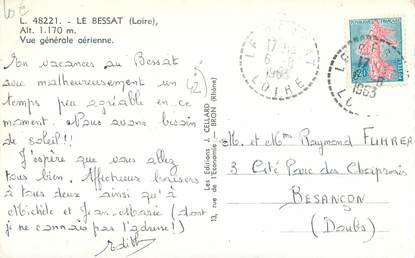 L. 48221. - LE BESSAT (Loire),
Alt. 1.170 m.
Vue générale aérienne.
42
En vacances au Bessat
avec malheureusement un
temps peu agréable en ce
moment. Nous avons besoin
de soleil!!
J'espère que vous allez
tous bien. Affectueux baisers
à tous deux ainsi qu'à
Michèle et Jean-Marie (dont
je ne connais pas l'adresse!)
Edith
Les Editions J. CELLARD
13, rue de l'Economie - BRON (Rhône)
17
6
1963
LOIRE
17
1963
M. et Mme Raymond FUHRER
3 Cité Parc des Chaprais
BESANÇON
(Doubs)